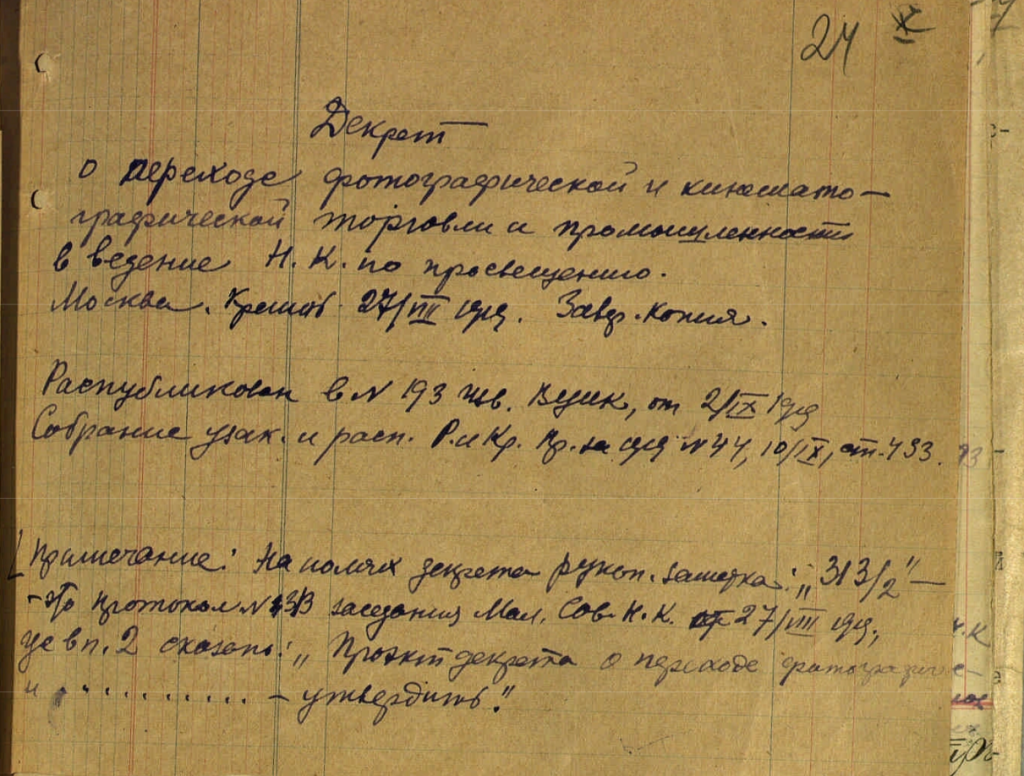 24
Декрет
о переходе фотографической и кинемато-
графической торговли и промышленности
в ведение Н. К. по просвещению.
Москва. Кремль 27/VIII 1919. Завер. копия.
Распубликован в № 193 Изв. ВЦИК, от 2/IX 1919
Собрание узак. и расп. Р. и Кр. Пр. за 1919 № 44, 10/IX, ст. 433.
[Примечание: На полях декрета рукоп. заметка: „313/2" —
- это протокол № 313 заседания Мал. Сов. Н. К. от 27/VIII 1919,
где в п. 2 сказано: „Проэкт декрета о переходе фотографиче-
и . . . . . . . . . . . — утвердить".